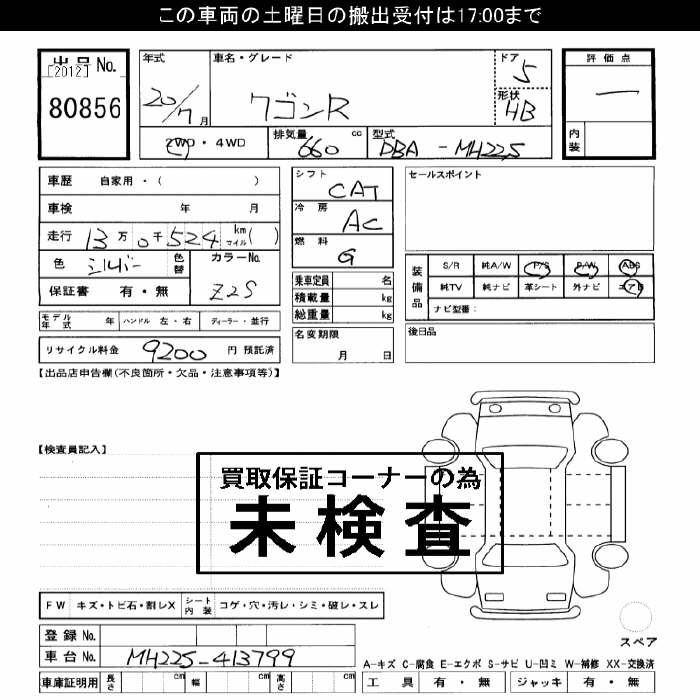 この車両の土曜日の搬出受付は17:00まで
出品 No.
[2012]
80856
年式
20/7 月
車名・グレード
ワゴンR
ドア
5
形状
HB
評価点
一
内装
2WD・4WD
排気量
660 cc
型式
DBA - MH22S
車歴 自家用・( )
車検 年 月
走行 13万0千524 km マイル( )
色 シルバー 色替 カラーNo.
保証書 有・無 Z2S
シフト CAT
冷房 AC
燃料 G
乗車定員 名
積載量 kg
総重量 kg
セールスポイント
装備品
S/R 純A/W P/S P/W ABS
純TV 純ナビ 革シート 外ナビ エアB
ナビ型番:
モデル年式 年 ハンドル 左・右 ディーラー・並行
名変期限
月 日
後日品
リサイクル料金 9200 円 預託済
【出品店申告欄(不良箇所・欠品・注意事項等)】
【検査員記入】
買取保証コーナーの為
未検査
FW キズ・トビ石・割レX シート内装 コゲ・穴・汚レ・シミ・破レ・スレ
スペア
登録 No.
車台 No. MH22S-413799
A-キズ C-腐食 E-エクボ S-サビ U-凹ミ W-補修 XX-交換済
車庫証明用 長さ cm 幅 cm 高さ cm
工具 有・無 ジャッキ 有・無